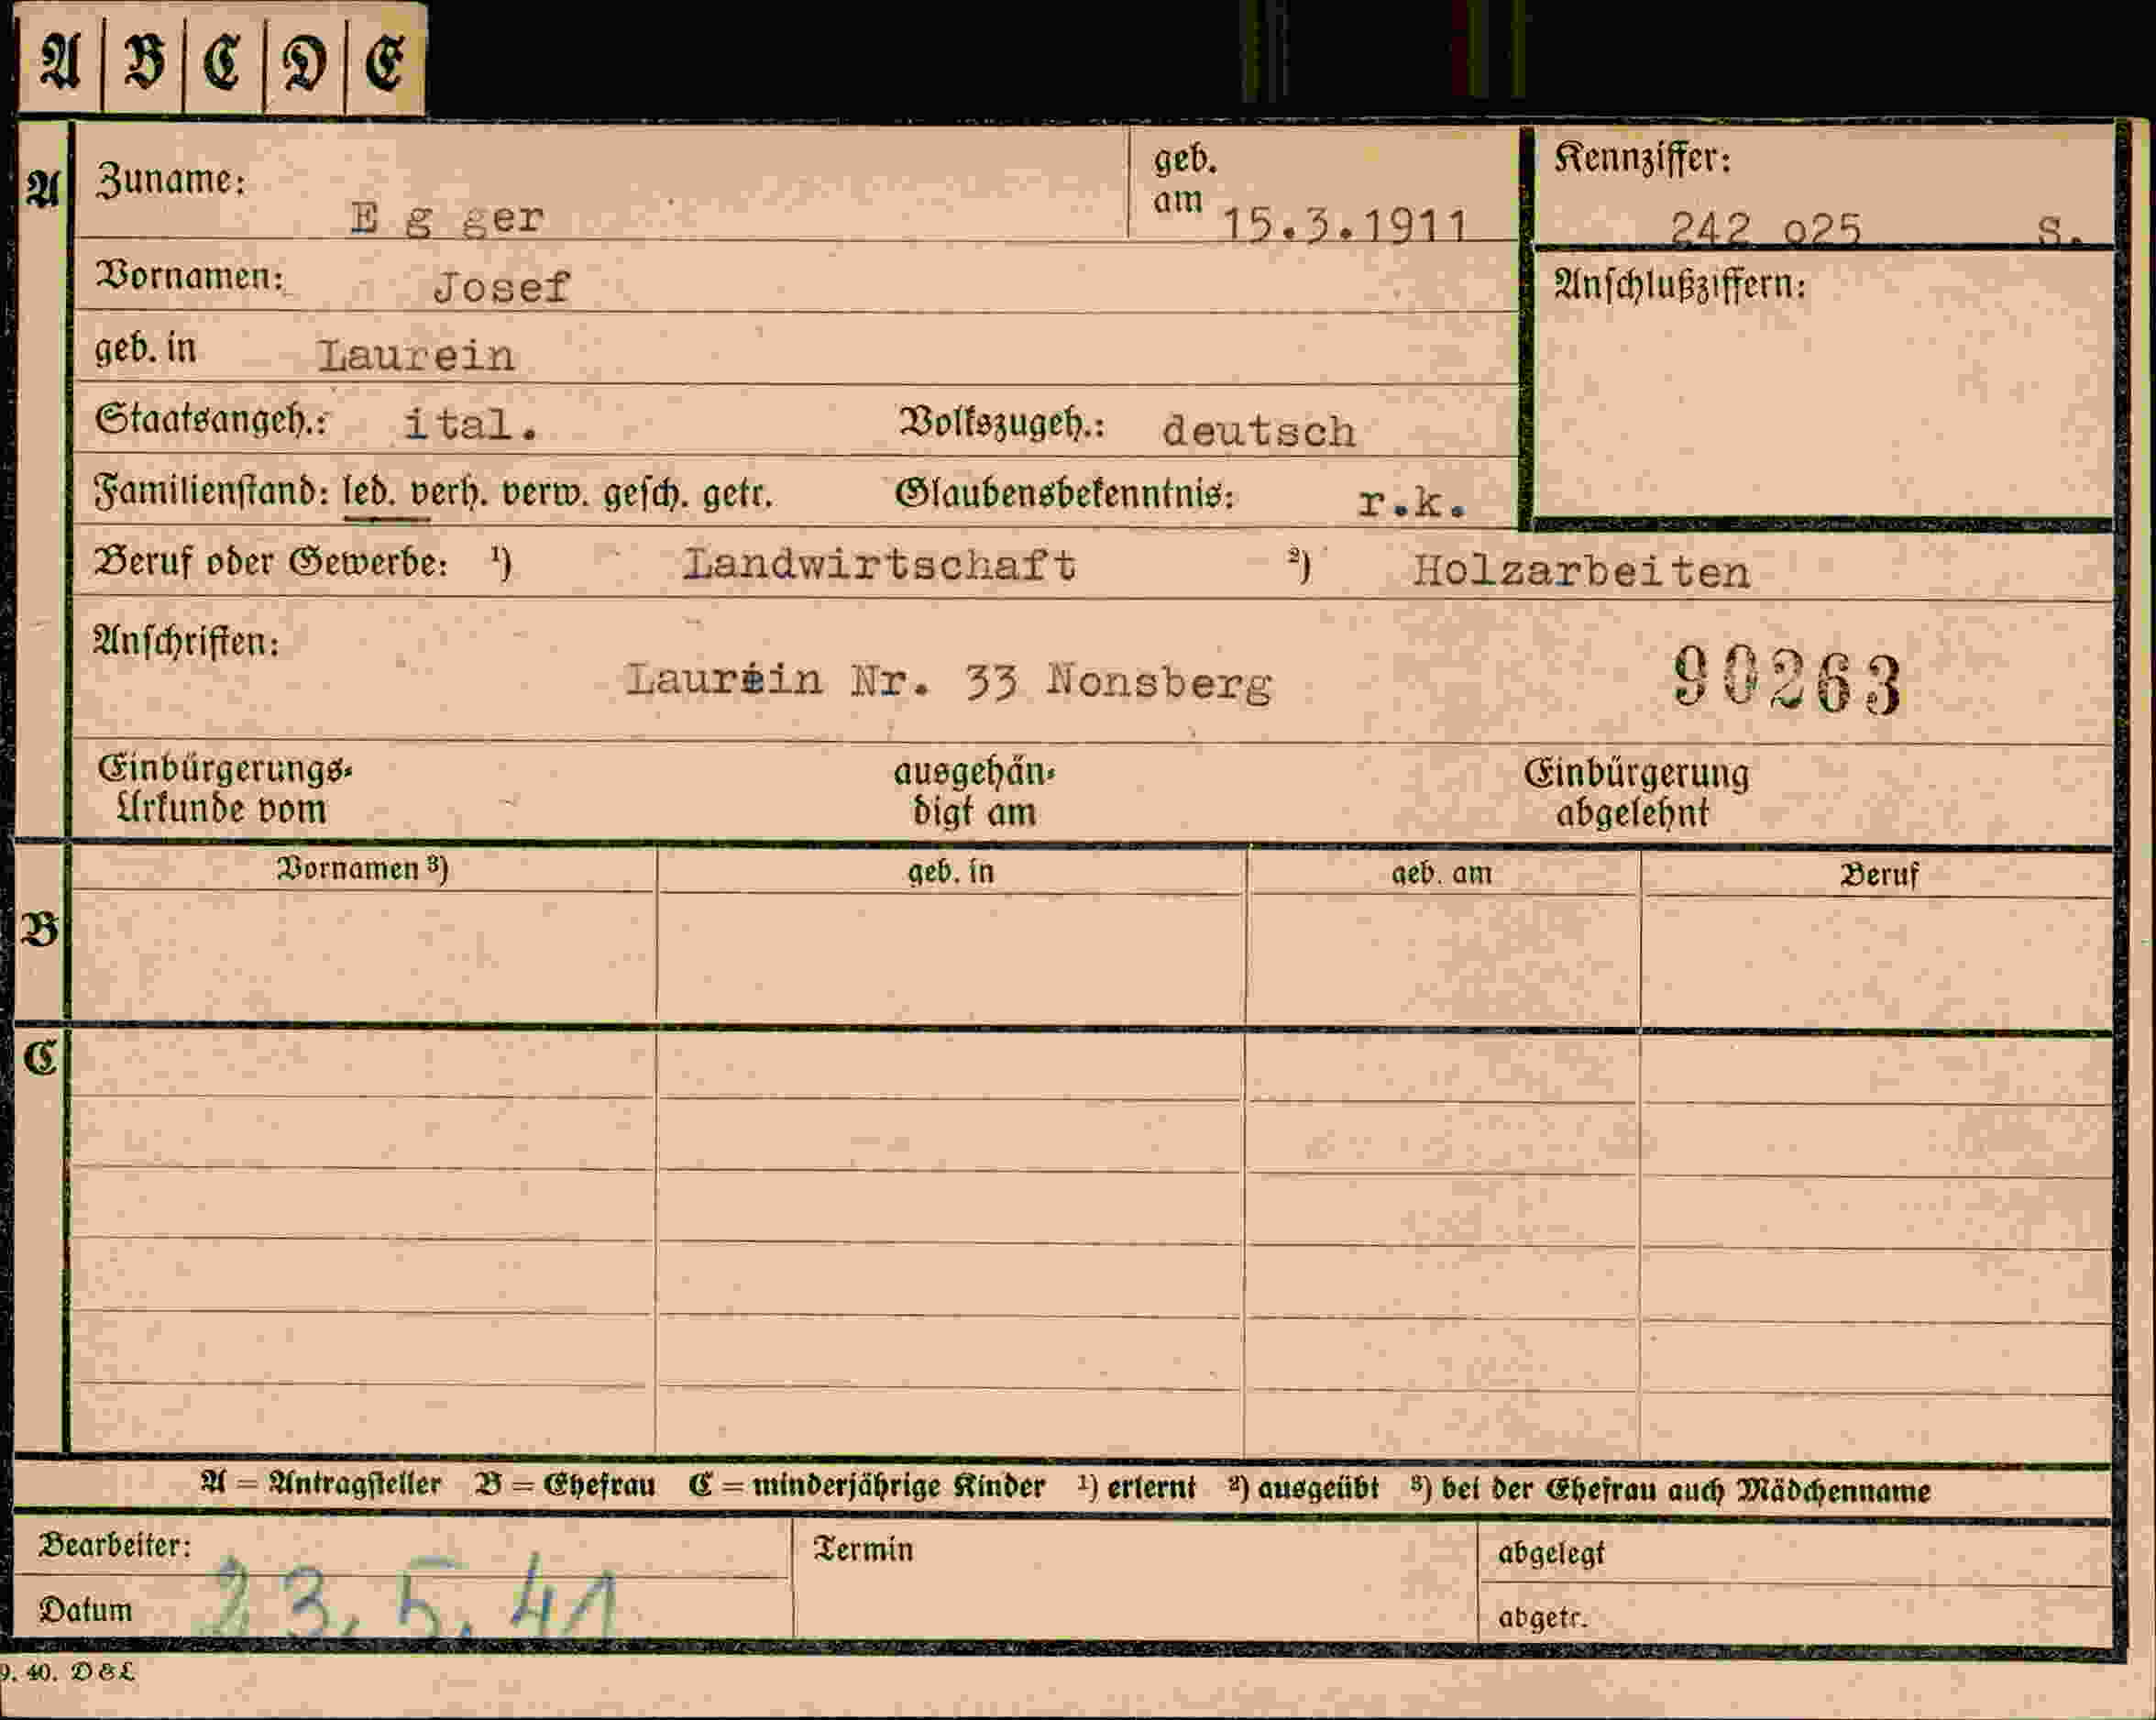 A | B | C | D | E
A
Zuname: E g ger
geb. am 15.3.1911
Kennziffer: 242 o25 S.
Vornamen: Josef
Anschlußziffern:
geb. in Laurein
Staatsangeh.: ital. Volkszugeh.: deutsch
Familienstand: led. verh. verw. gesch. getr. Glaubensbekenntnis: r.k.
Beruf oder Gewerbe: ¹) Landwirtschaft ²) Holzarbeiten
Anschriften:
Laurein Nr. 33 Nonsberg 90263
Einbürgerungs- ausgehän- Einbürgerung
Urkunde vom digt am abgelehnt
Vornamen ³) geb. in geb. am Beruf
B
C
A = Antragsteller B = Ehefrau C = minderjährige Kinder ¹) erlernt ²) ausgeübt ³) bei der Ehefrau auch Mädchenname
Bearbeiter: Termin abgelegt
Datum 23.5.41 abgetr.
9. 40. D&L